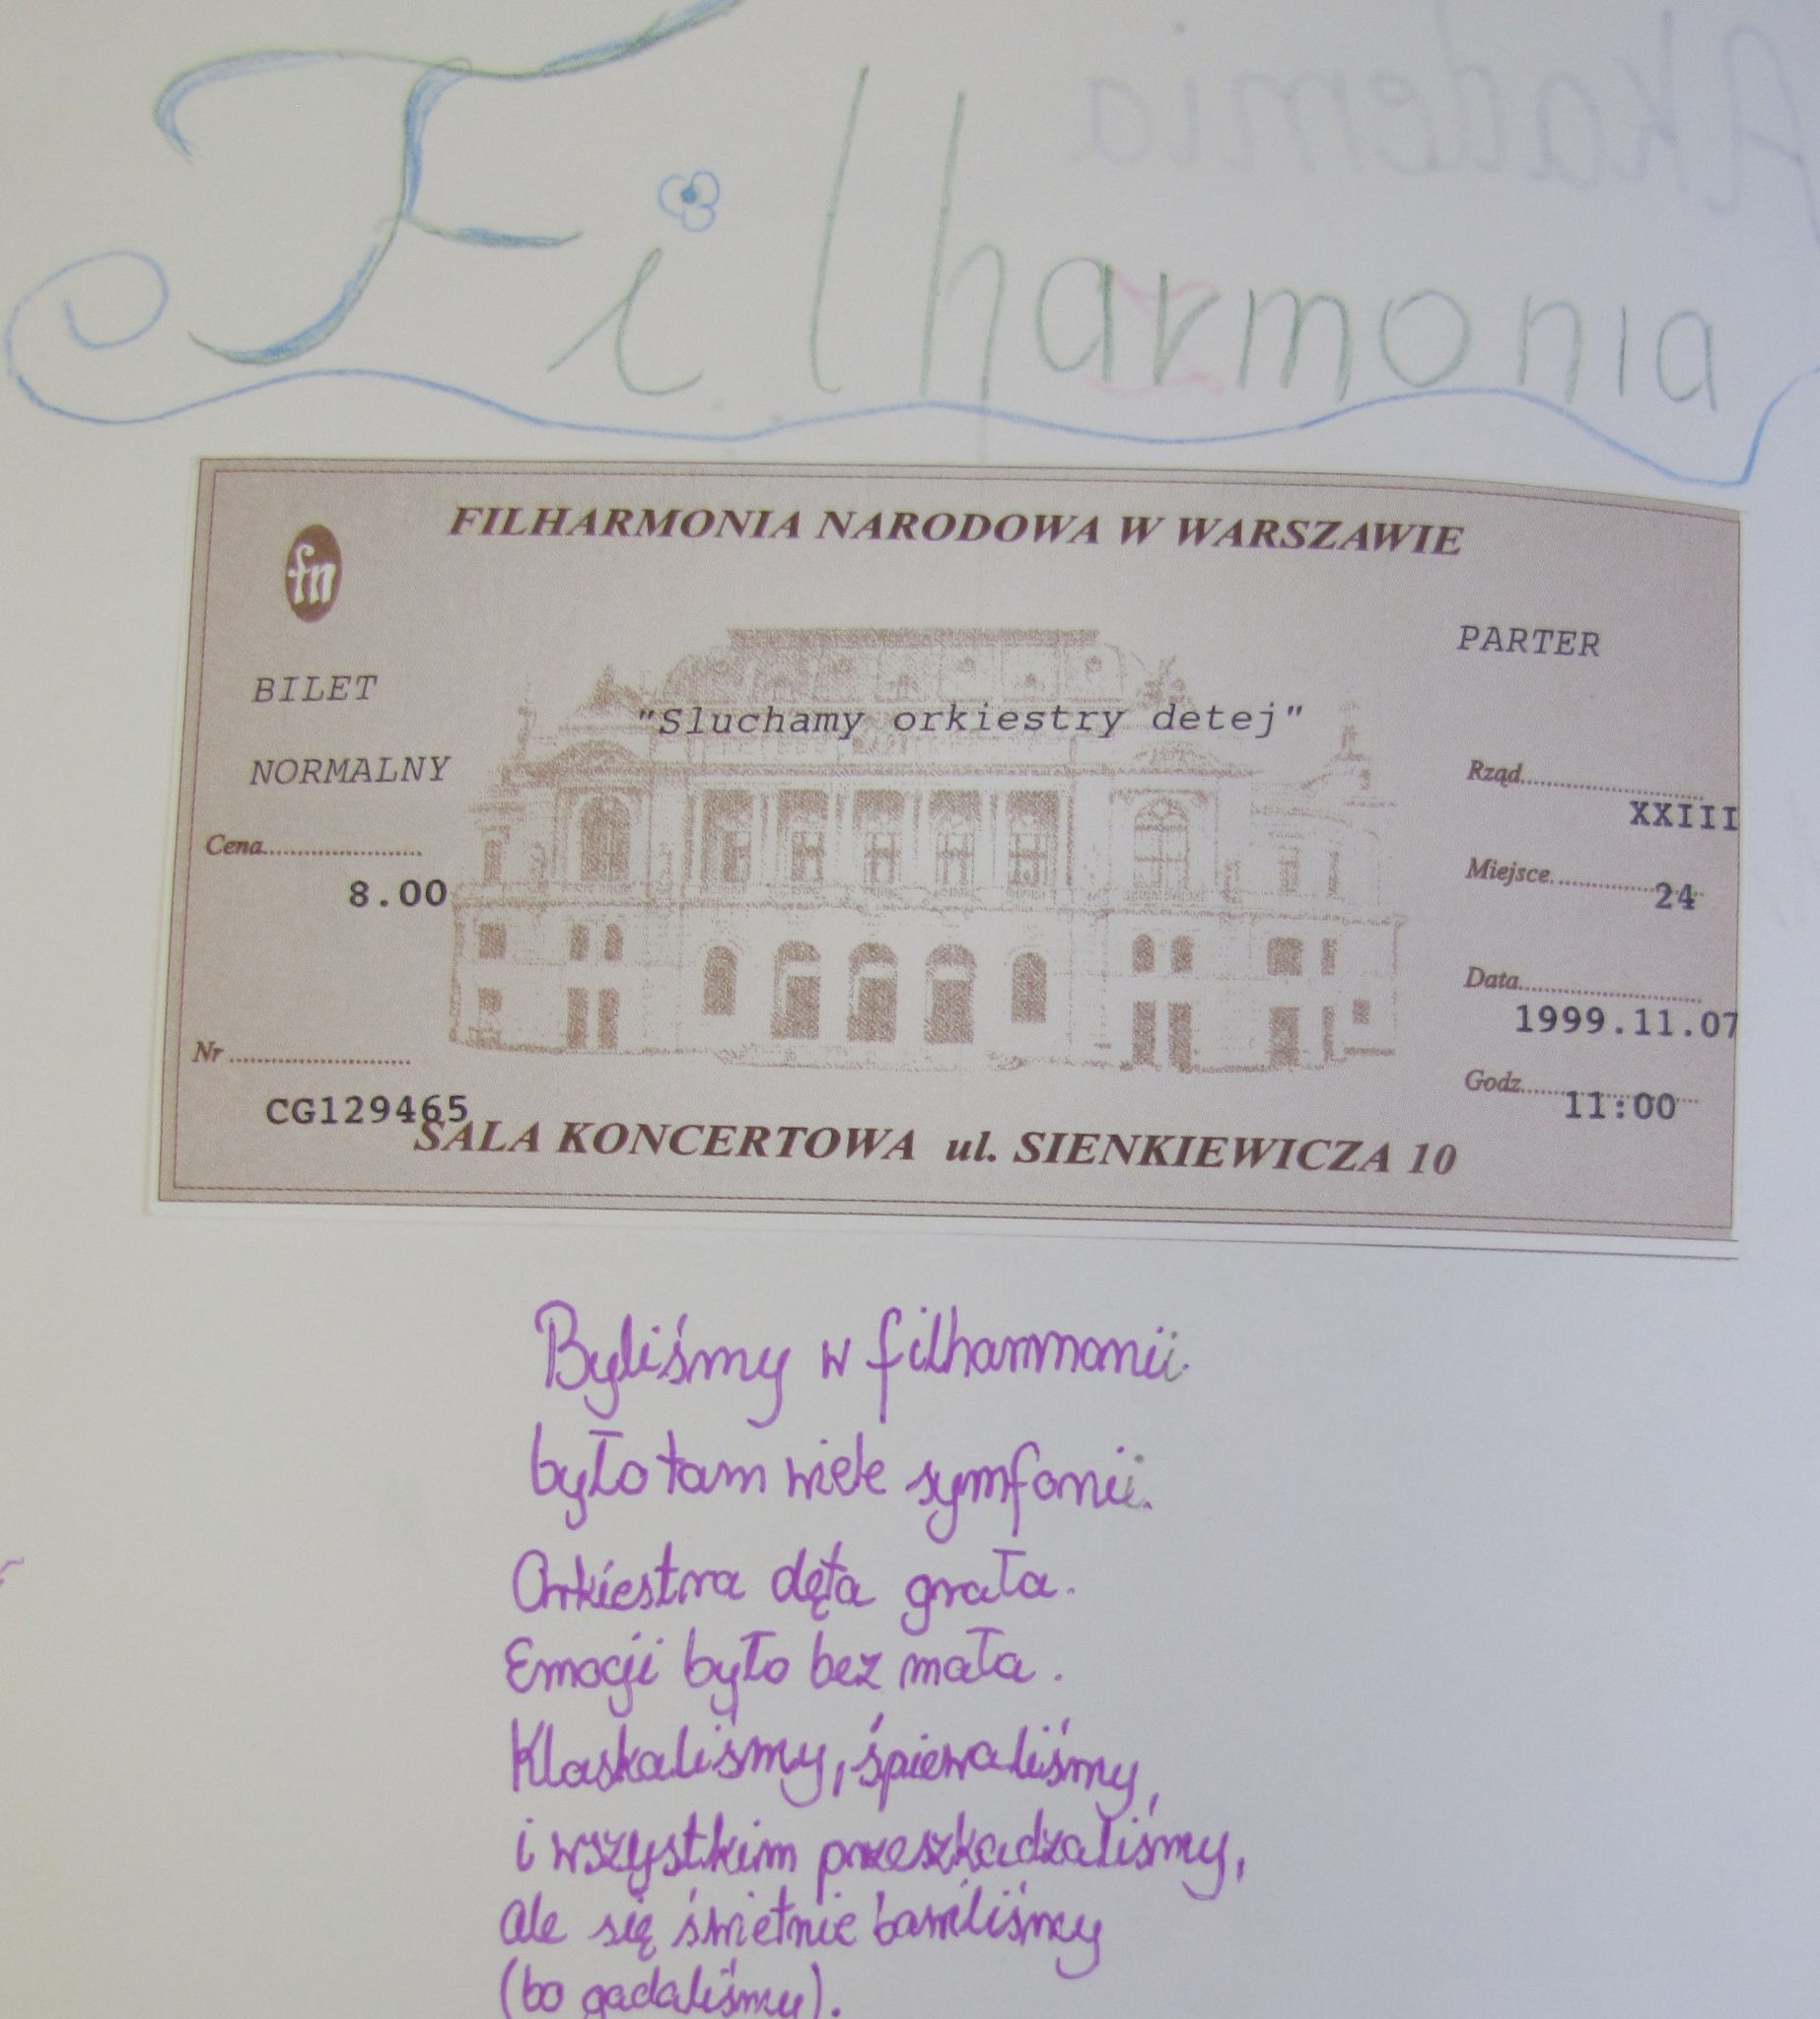 Akademia
Filharmonia
FILHARMONIA NARODOWA W WARSZAWIE
fn
PARTER
BILET
"Sluchamy orkiestry detej"
NORMALNY
Rząd
XXIII
Cena
8.00
Miejsce
24
Data
1999.11.07
Nr
CG129465
Godz.
11:00
SALA KONCERTOWA ul. SIENKIEWICZA 10
Byliśmy w filharmonii.
było tam wiele symfonii.
Orkiestra dęta grała.
Emocji było bez mała.
Klaskaliśmy, śpiewaliśmy,
i wszystkim przeszkadzaliśmy,
ale się świetnie bawiliśmy
(bo gadaliśmy).